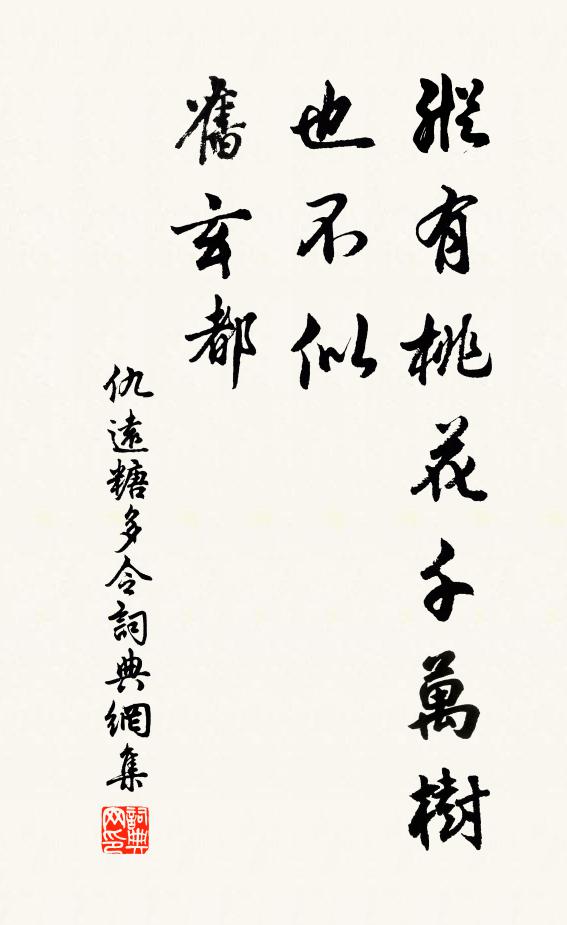 縱有桃花千萬樹
也不似
舊玄都
仇遠糖多令詞典網集
詞典网印